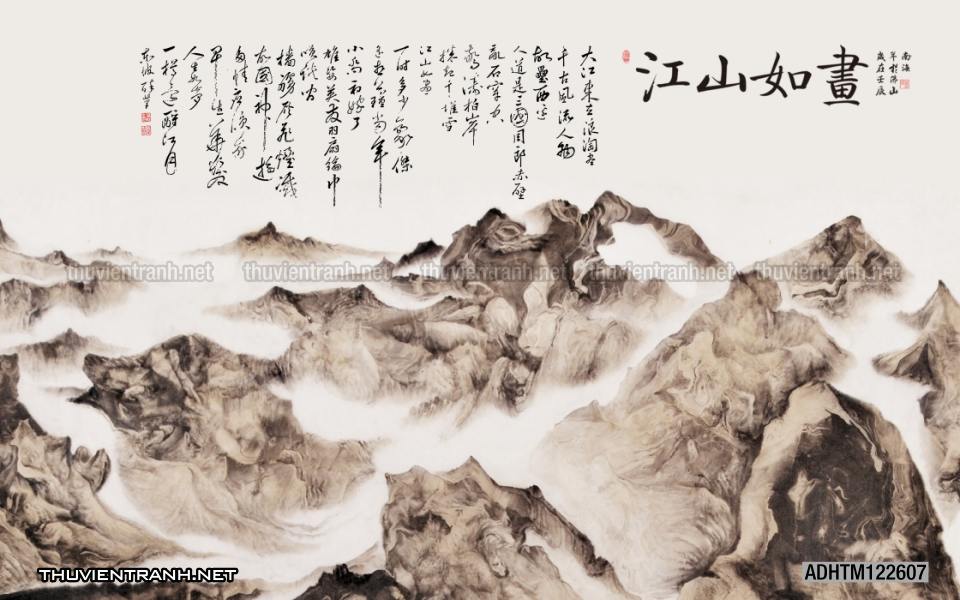 江山如畫
南海
歲在壬辰
大江東去浪淘盡
千古風流人物
故壘西邊
人道是三國周郎赤壁
亂石穿空
驚濤拍岸
捲起千堆雪
江山如畫
一時多少豪傑
遙想公瑾當年
小喬初嫁了
雄姿英發羽扇綸巾
談笑間
檣櫓灰飛煙滅
故國神遊
多情應笑我
早生華髮
人生如夢
一樽還酹江月
thuvientranh.net thuvientranh.net thuvientranh.net thuvientranh.net thuvientranh.net
THUVIENTRANH.NET
ADHTM122607